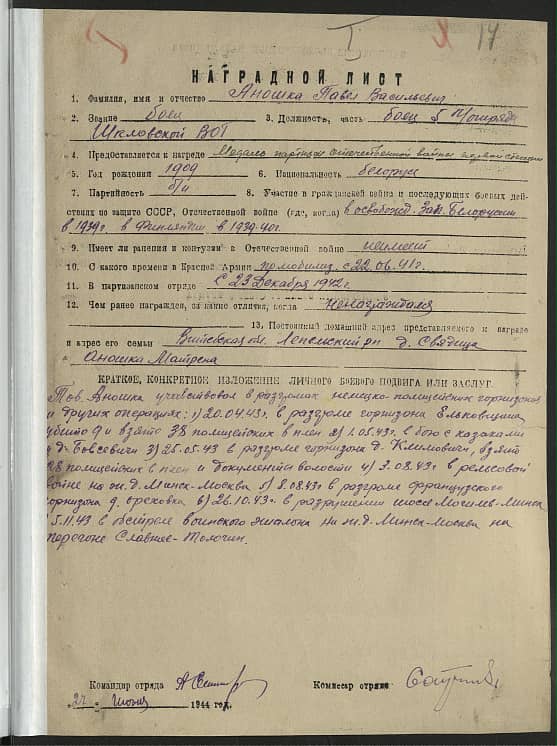 I 14
НАГРАДНОЙ ЛИСТ
1. Фамилия, имя и отчество Аношка Павел Васильевич
2. Звание боец 3. Должность, часть боец 5 п/отряда
Шкловской ВОГ
4. Предоставляется к награде Медаль партизан отечественной войны первой степени
5. Год рождения 1909 6. Национальность белорус
7. Партийность б/п 8. Участие в гражданской война и последующих боевых дей-
ствиях по защите СССР, Отечественной войне (где, когда) в освобожд. Зап. Белоруссии
в 1939г. в Финляндии в 1939-40г.
9. Имеет ли ранения и контузии в Отечественной войне неимеет
10. С какого времени в Красной Армии по мобилиз. с 22.06.41г.
11. В партизанском отряде с 23 Декабря 1942г.
12. Чем ранее награжден, за какие отличия, когда ненаграждался
13. Постоянный домашний адрес представляемого к награде
и адрес его семьи Витебская обл. Лепельский рн д. Свядица
Аношка Матрена
КРАТКОЕ, КОНКРЕТНОЕ ИЗЛОЖЕНИЕ ЛИЧНОГО БОЕВОГО ПОДВИГА ИЛИ ЗАСЛУГ
Тов. Аношка участвовал в разгромах немецко-полицейских гарнизонов
и других операциях: 1) 20.04.43г. в разгроме гарнизона Ельковщина,
убито 9 и взято 38 полицейских в плен 2) 1.05.43г. в бою с казаками
у д. Бовсевичи 3) 25.05.43 в разгроме гарнизона д. Климовичи, взят
28 полицейских в плен и документы волости 4) 3.08.43г в рельсовой
войне на ж.д. Минск-Москва 5) 8.08.43г в разгроме французского
гарнизона д. Ореховка 6) 26.10.43г. в разрушении шоссе Могилев-Минск
5.11.43 в обстреле воинского эшалона на ж.д. Минск-Москва на
перегоне Славное-Толочин.
Командир отряда Комиссар отряда
"27" Июня 1944 год.